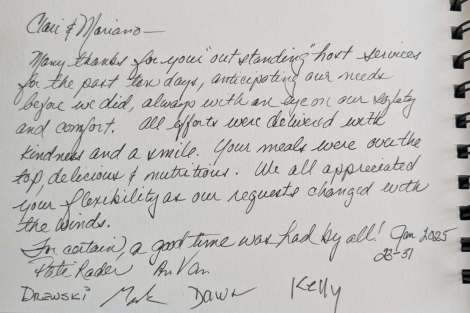 Clari & Mariano—
Many thanks for your "out standing" host services
for the past ten days, anticipating our needs
before we did, always with an eye on our safety
and comfort. All efforts were delivered with
kindness and a smile. Your meals were over the
top, delicious & nutritious. We all appreciated
your flexibility as our requests changed with
the winds.
For certain, a good time was had by all! Jan 2025
23-31
Pete Rader An Van
Drewski Mark Dawn Kelly